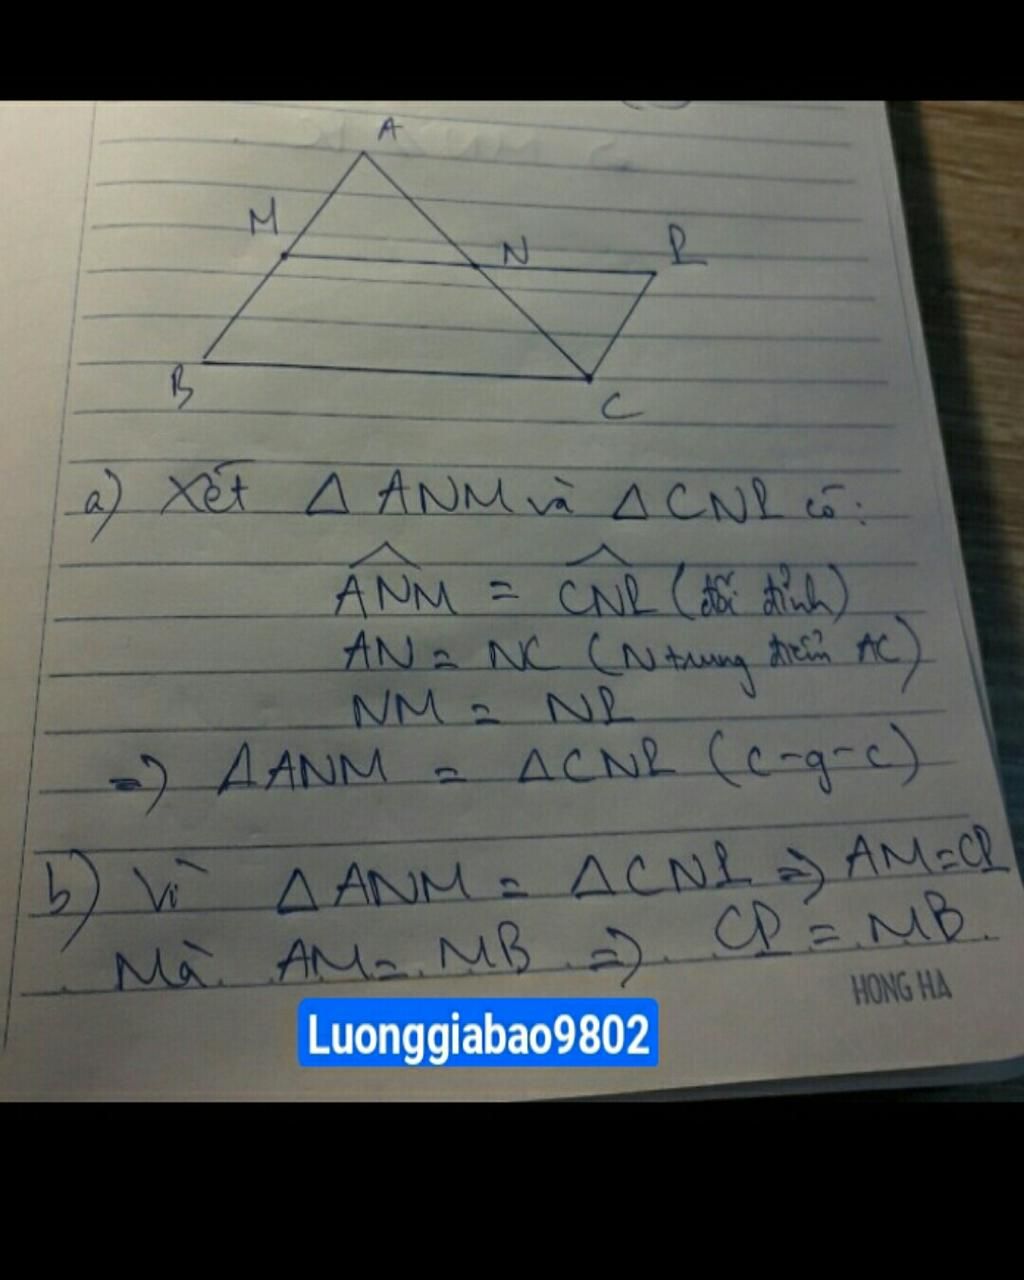 A
M
N
P
B
C
a) Xét Δ ANM và Δ CNP có:
ANM = CNP (đối đỉnh)
AN = NC (N trung điểm AC)
NM = NP
=> ΔANM = ΔCNP (c-g-c)
b) Vì ΔANM = ΔCNP => AM=CP
Mà AM = MB => CP = MB
HONG HA
Luonggiabao9802